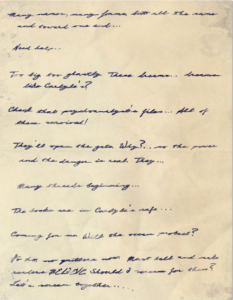 Many names, many forms, but all the same
and toward one end...
Need help...
Too big too ghastly These dreams... dreams
like Carlyle's?
Check that psychoanalyst's files... All of
them survived!
They'll open the gate Why?... so the power
and the danger is real They...
Many threads beginning...
The books are in Carlyle's safe...
Coming for me Will the ocean protect?
no quitters now Must tell and make
readers Should I scream for them?
Let's scream together...